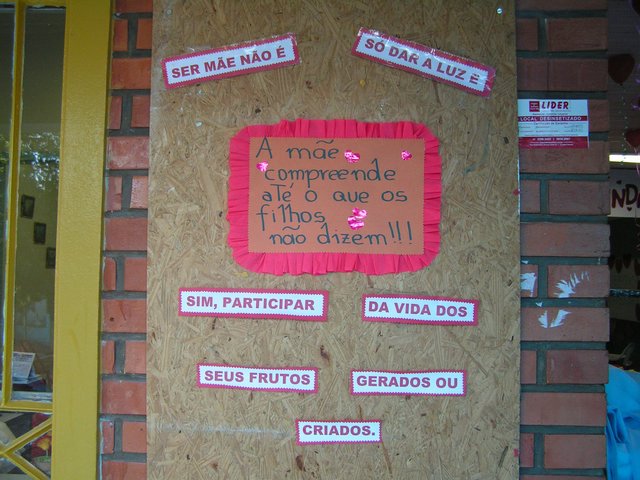 SER MÃE NÃO É
SÓ DAR A LUZ É
A mãe
compreende
até o que os
filhos
não dizem!!!
SIM, PARTICIPAR
DA VIDA DOS
SEUS FRUTOS
GERADOS OU
CRIADOS.
LIDER
LOCAL DESINSETIZADO